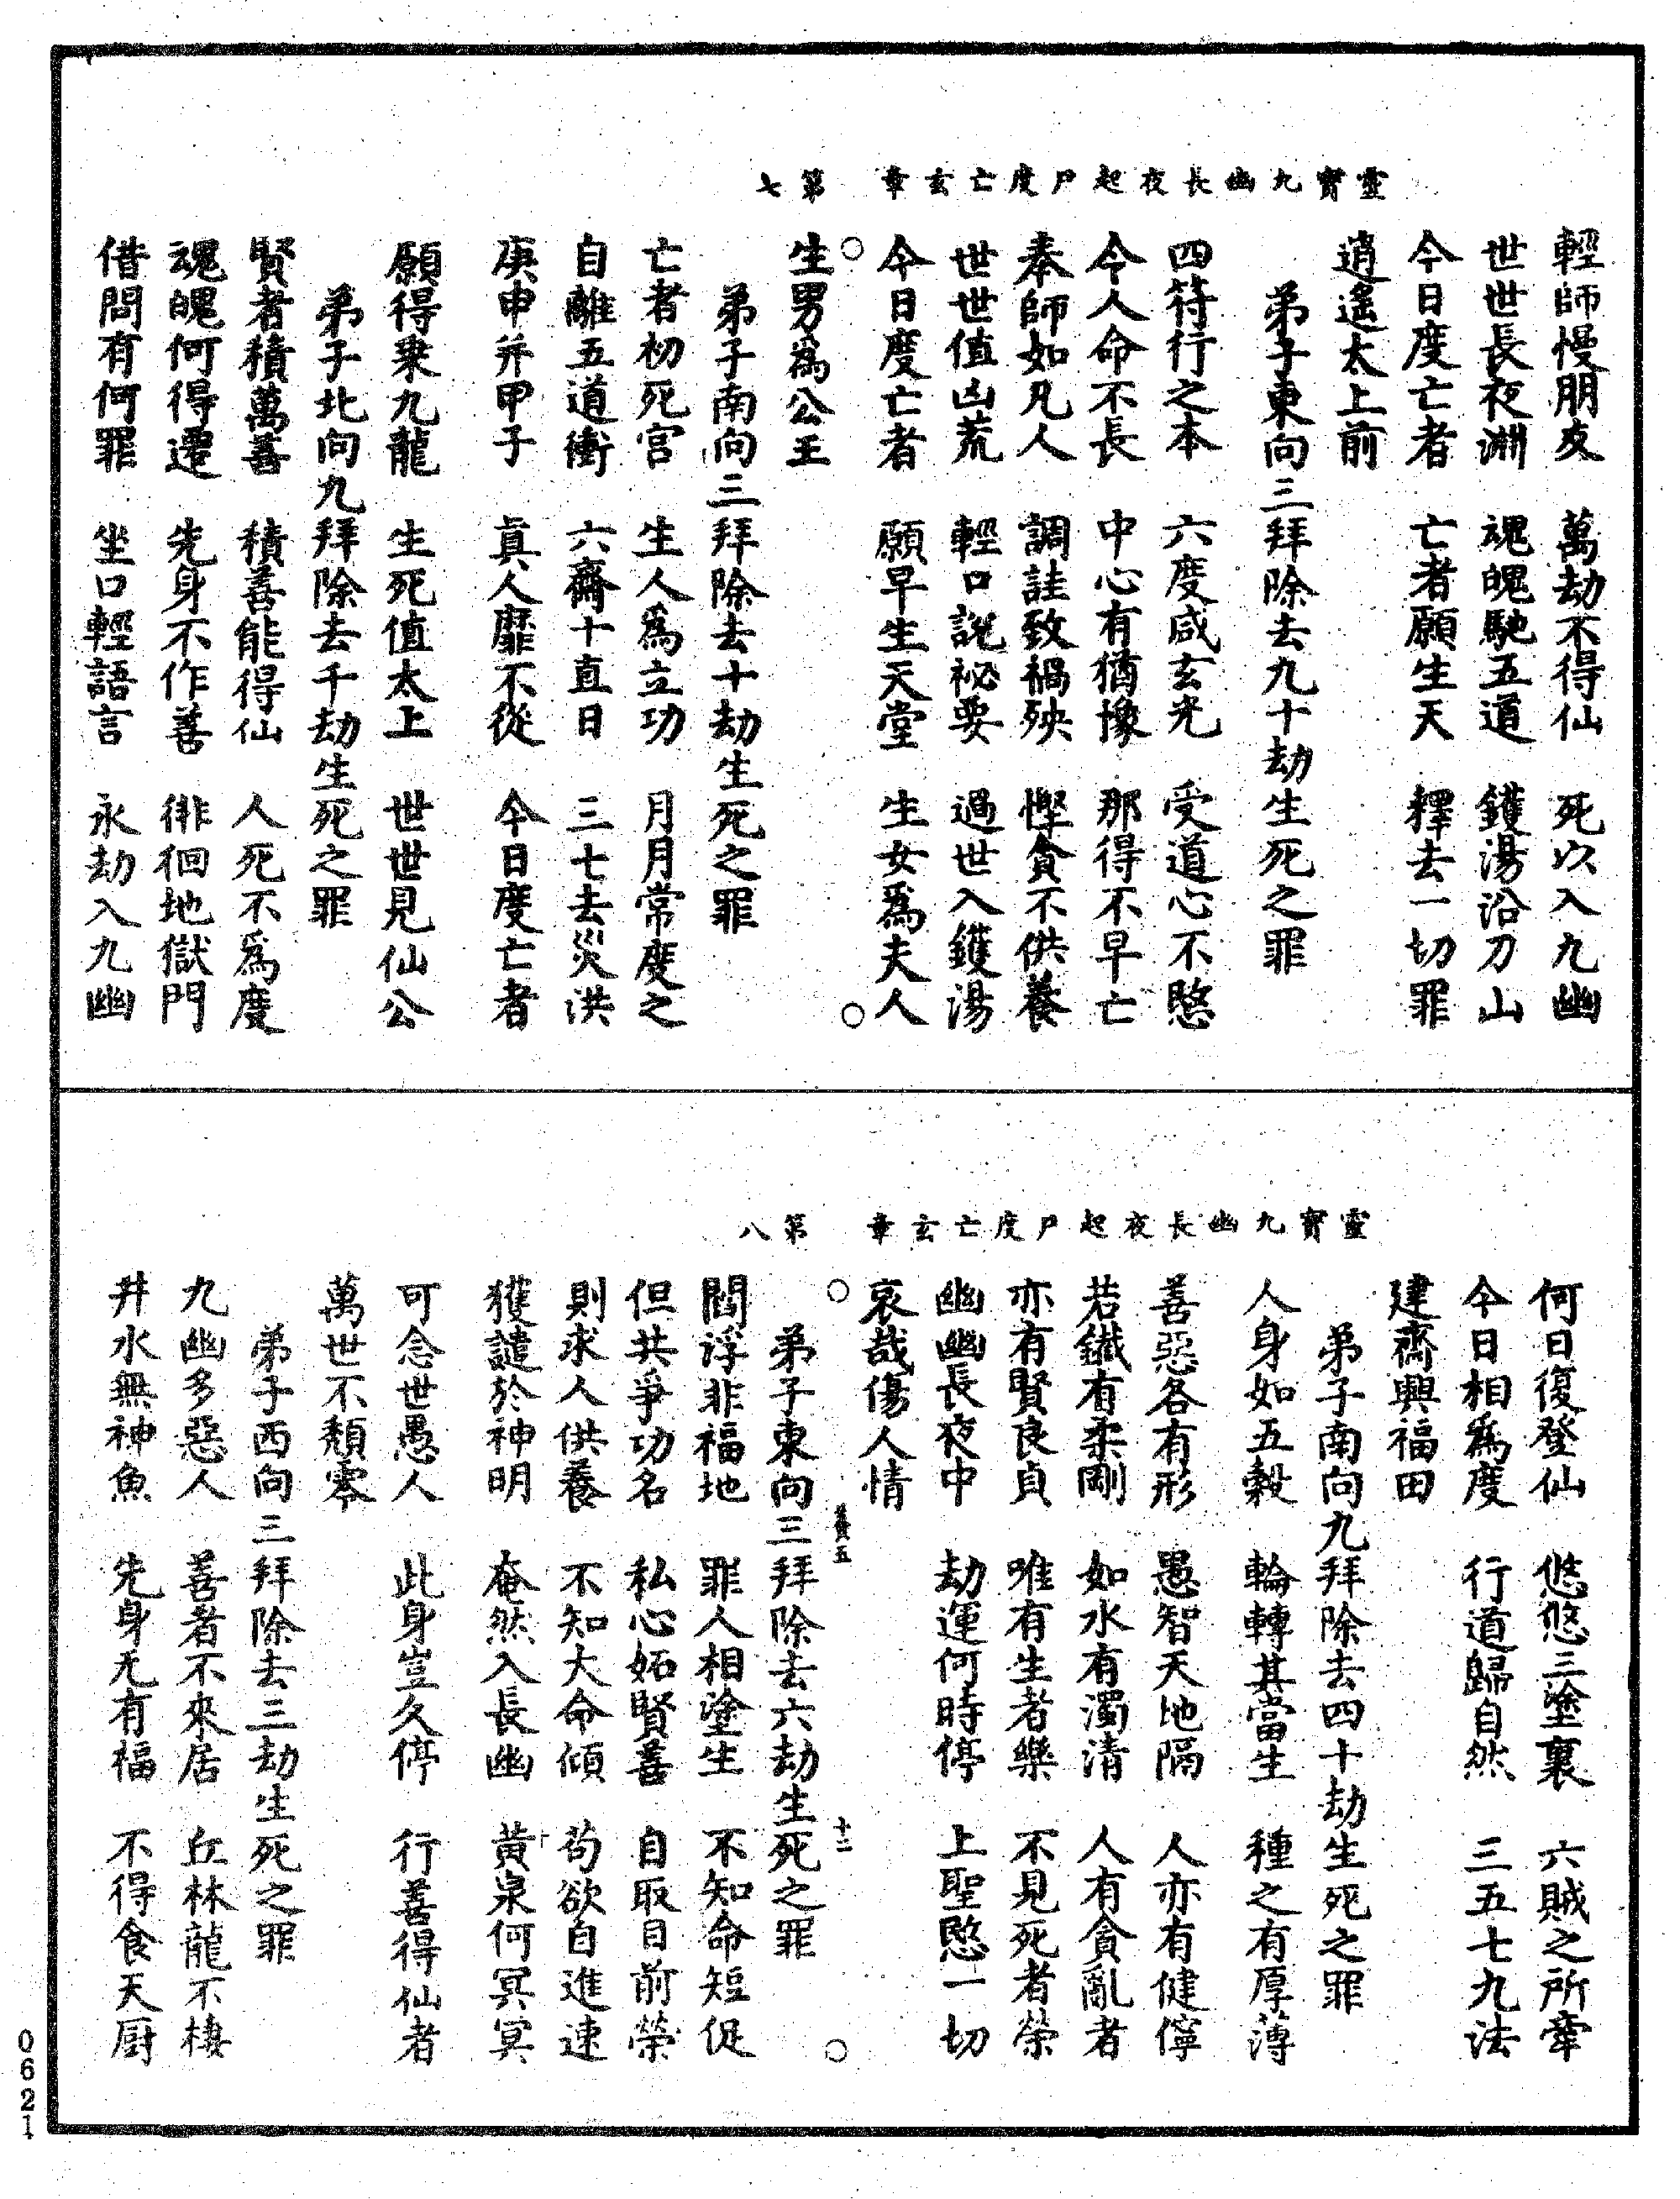 靈寶九幽長夜起尸度亡玄章　第七
輕師慢朋友　萬劫不得仙　死以入九幽
世世長夜淵　魂魄馳五道　鑊湯沿刀山
今日度亡者　亡者願生天　釋去一切罪
逍遙太上前
弟子東向三拜除去九十劫生死之罪
四符行之本　六度咸玄光　受道心不愍
令人命不長　中心有猶豫　那得不早亡
奉師如凡人　調詿致禍殃　慳貪不供養
世世值凶荒　輕口說祕要　過世入鑊湯
今日度亡者　願早生天堂　生女為夫人
生男為公王
弟子南向三拜除去十劫生死之罪
亡者初死宮　生人為立功　月月常度之
自離五道衝　六齋十直日　三七去災洪
庚申并甲子　真人靡不從　今日度亡者
願得乘九龍　生死值太上　世世見仙公
弟子北向九拜除去千劫生死之罪
賢者積萬善　積善能得仙　人死不為度
魂魄何得還　先身不作善　徘徊地獄門
借問有何罪　坐口輕語言　永劫入九幽
靈寶九幽長夜起尸度亡玄章　第八
何日復登仙　悠悠三塗裏　六賊之所牽
今日相為度　行道歸自然　三五七九法
建齋興福田
弟子南向九拜除去四十劫生死之罪
人身如五穀　輪轉其當生　種之有厚薄
善惡各有形　愚智天地隔　人亦有健儜
若鐵有柔剛　如水有濁清　人有貪亂者
亦有賢良貞　唯有生者樂　不見死者榮
幽幽長夜中　劫運何時停　上聖愍一切
哀哉傷人情
五　十二
弟子東向三拜除去六劫生死之罪
閻浮非福地　罪人相塗生　不知命短促
但共爭功名　私心妬賢善　自取目前榮
則求人供養　不知大命傾　苟欲自進速
獲譴於神明　奄然入長幽　黃泉何冥冥
可念世愚人　此身豈久停　行善得仙者
萬世不頹零
弟子西向三拜除去三劫生死之罪
九幽多惡人　善者不來居　丘林龍不棲
井水無神魚　先身无有福　不得食天廚
0621